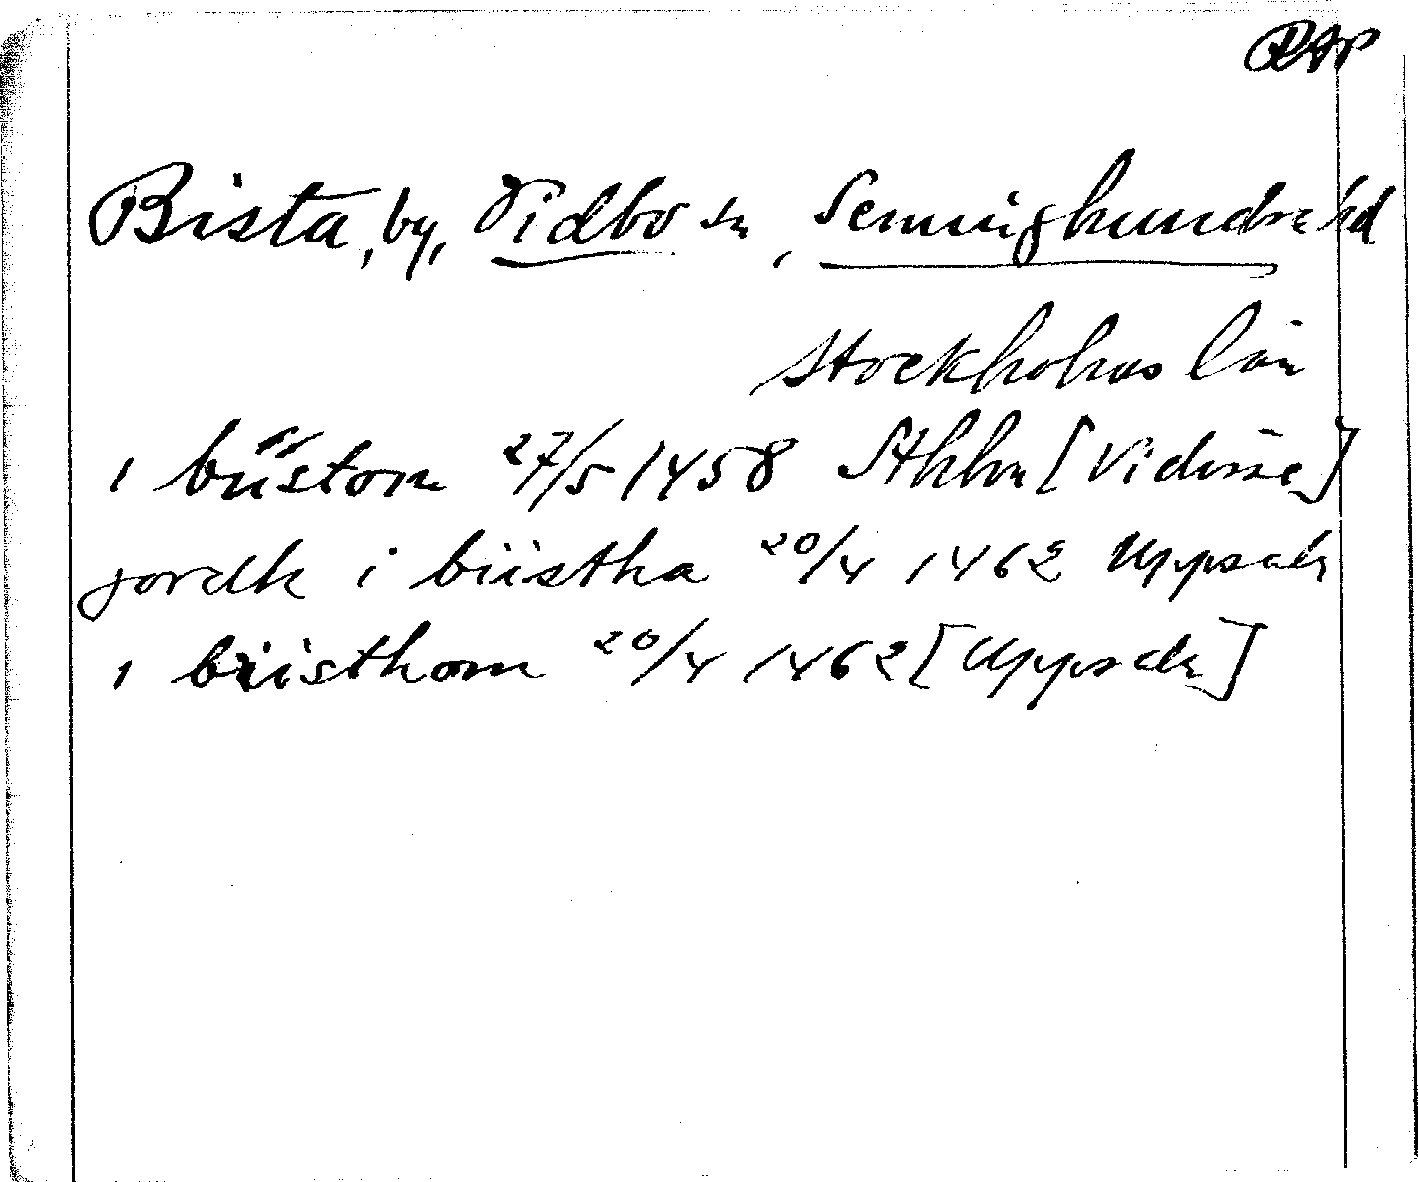 RAP
Bista, by, Vidbo sn, Seminghundra hd
Stockholms län
i biistom 27/5 1458 Sthlm [Vidisse]
jordh i biistha 20/4 1462 Uppsala
i biisthom 20/4 1462 [Uppsala]